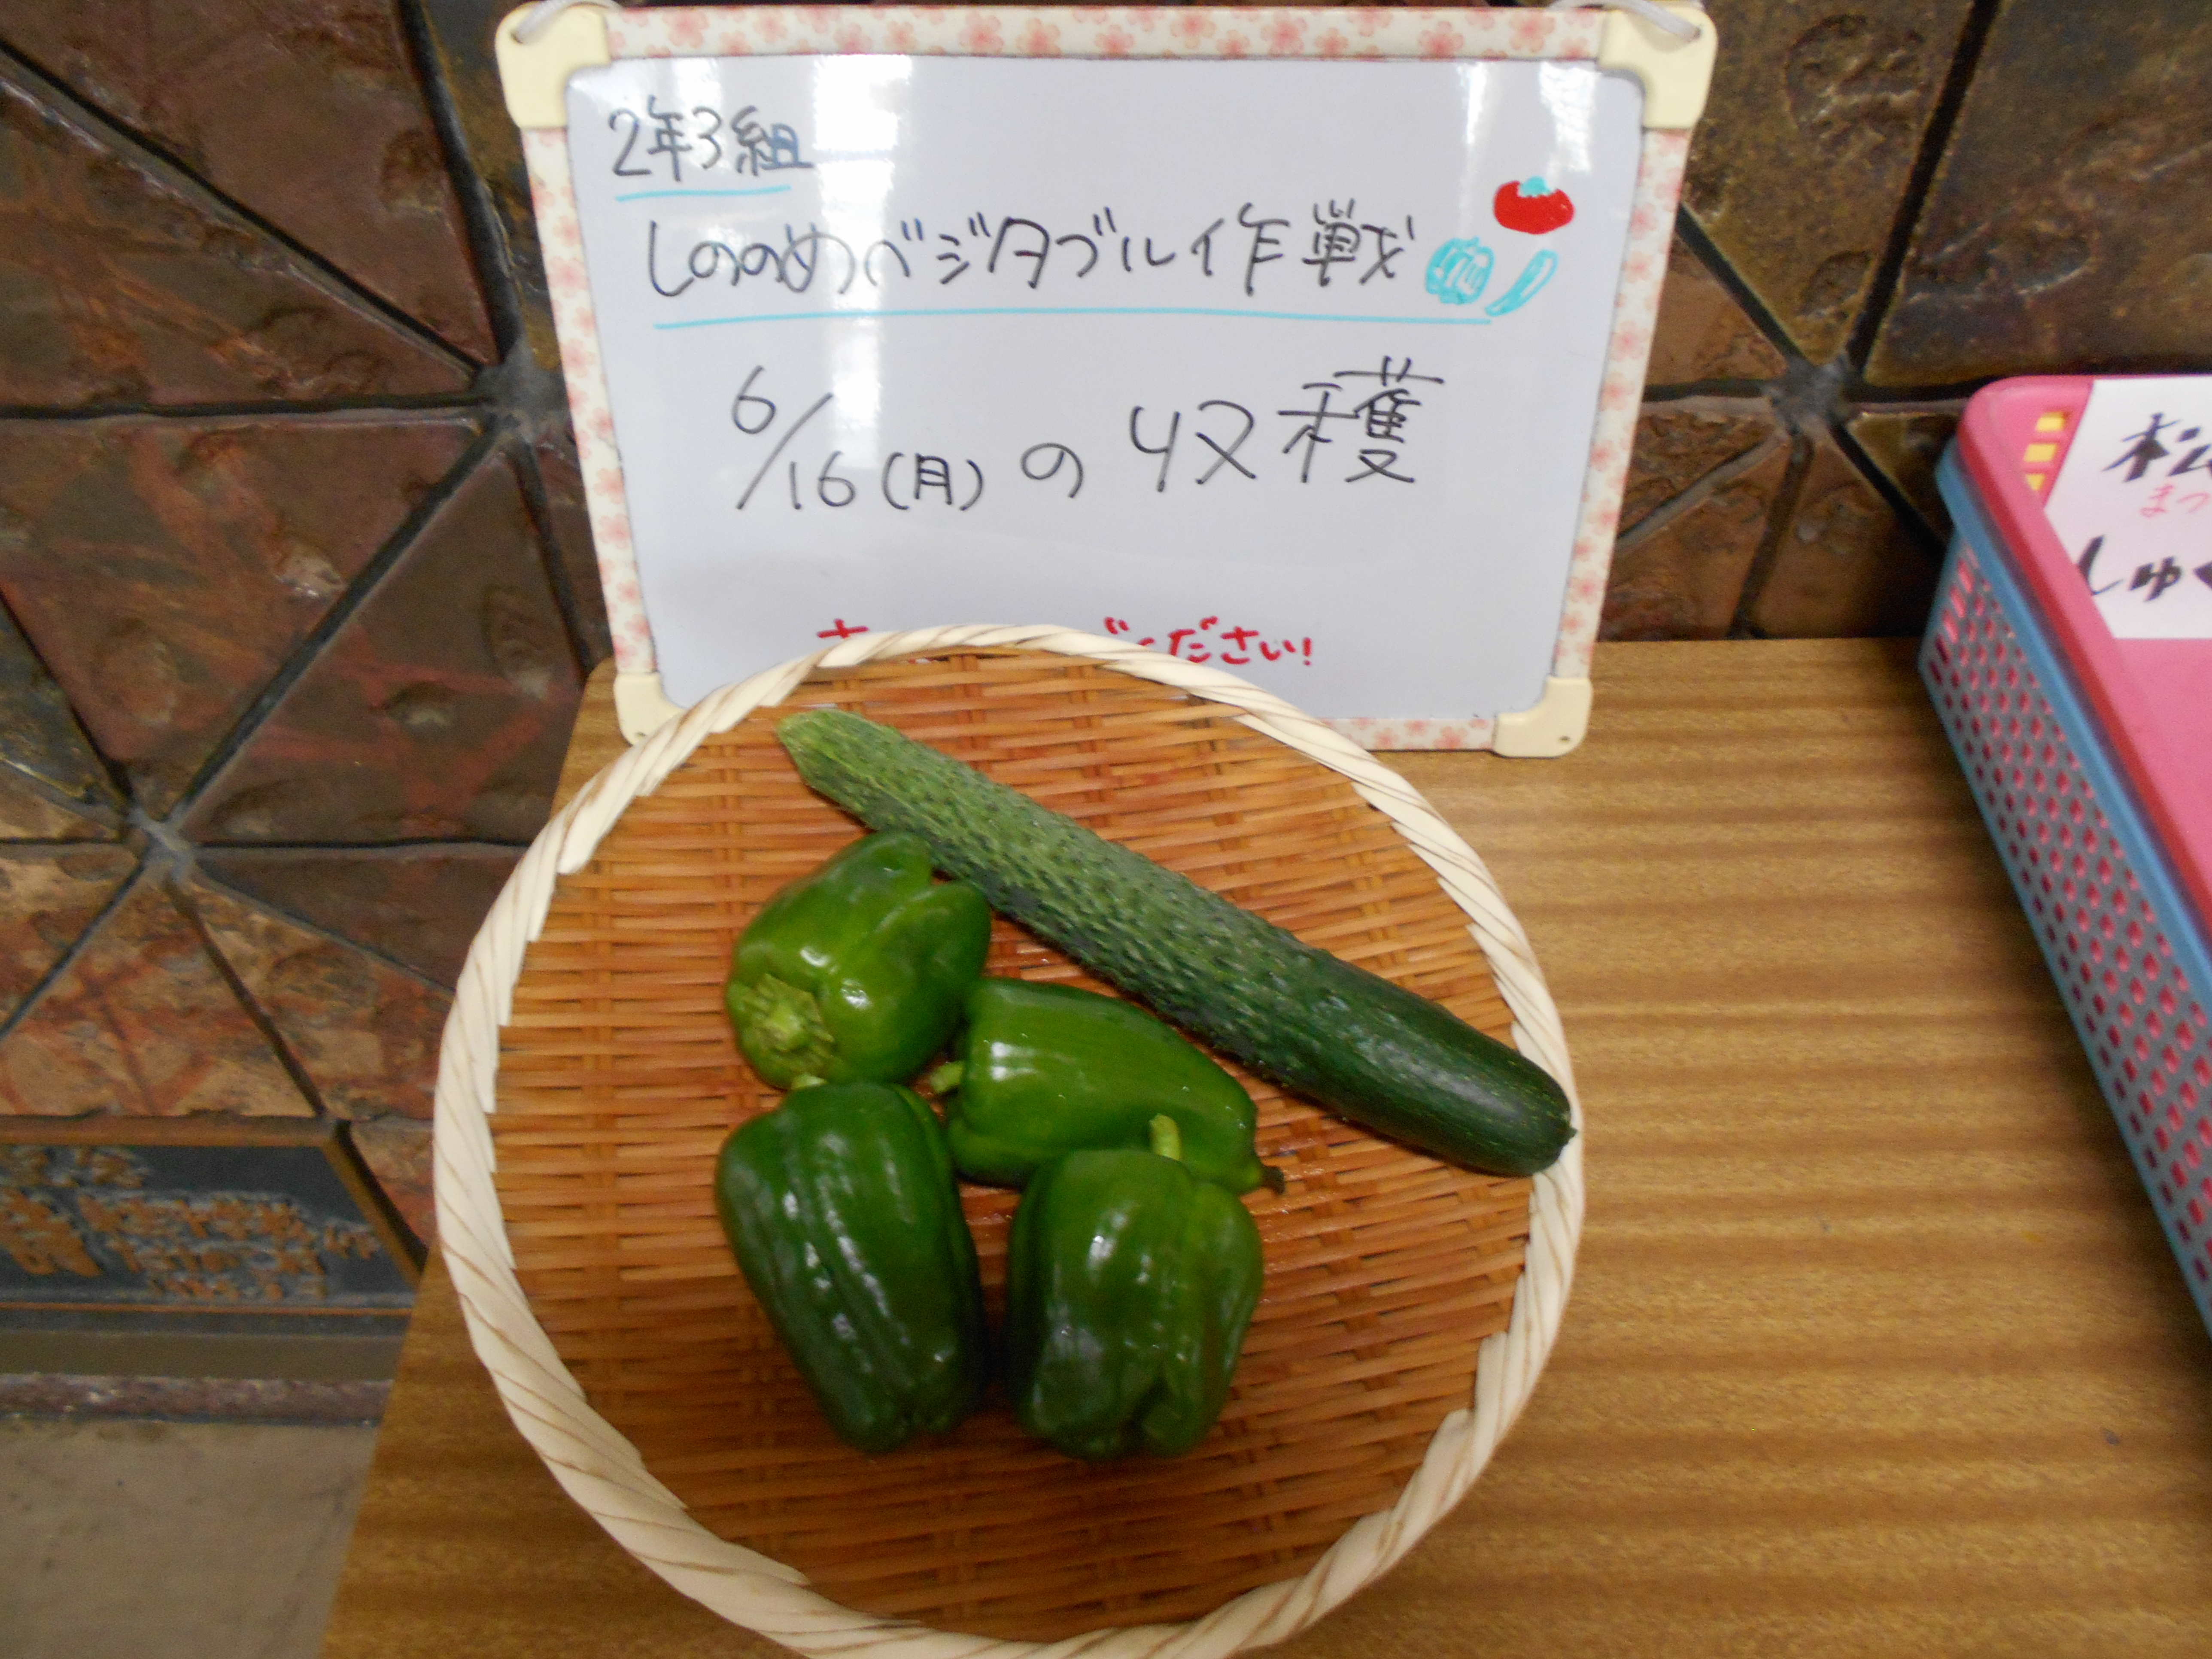 2年3組
しののめベジタブル作戦
6/16(月)の収穫
ください!
松
まつ
しゅく